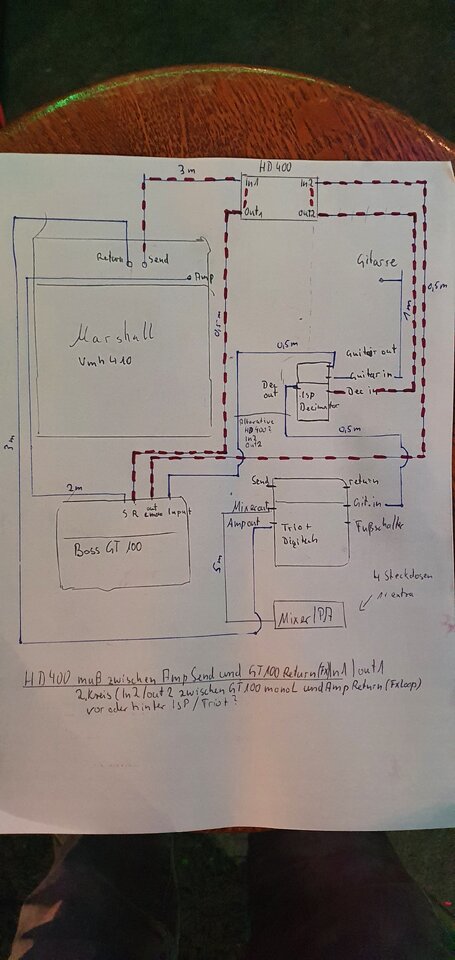 HD 400
3 m
In1
In2
Out1
out2
Return
Send
Amp
Gitarre
0,5 m
0,5m
1m
Marshall
Vmh 410
0,5m
Guitar out
Guitar in
Dec out
Dec in
ISP
Decimator
Alternative
HD400?
In2
Out2
0,5m
3m
2m
S R out Input
Boss GT 100
Send
return
Mixerout
Git. in
Ampout
Fußschalter
Trio+
Digitech
5m
4 Steckdosen
extra
Mixer/PA
HD400 muß zwischen Amp Send und GT100 Return (Fx) In1/out1
2. Kreis (In2/out2 zwischen GT100 mono L und Amp Return (Fx Loop)
vor oder hinter ISP / Trio+?